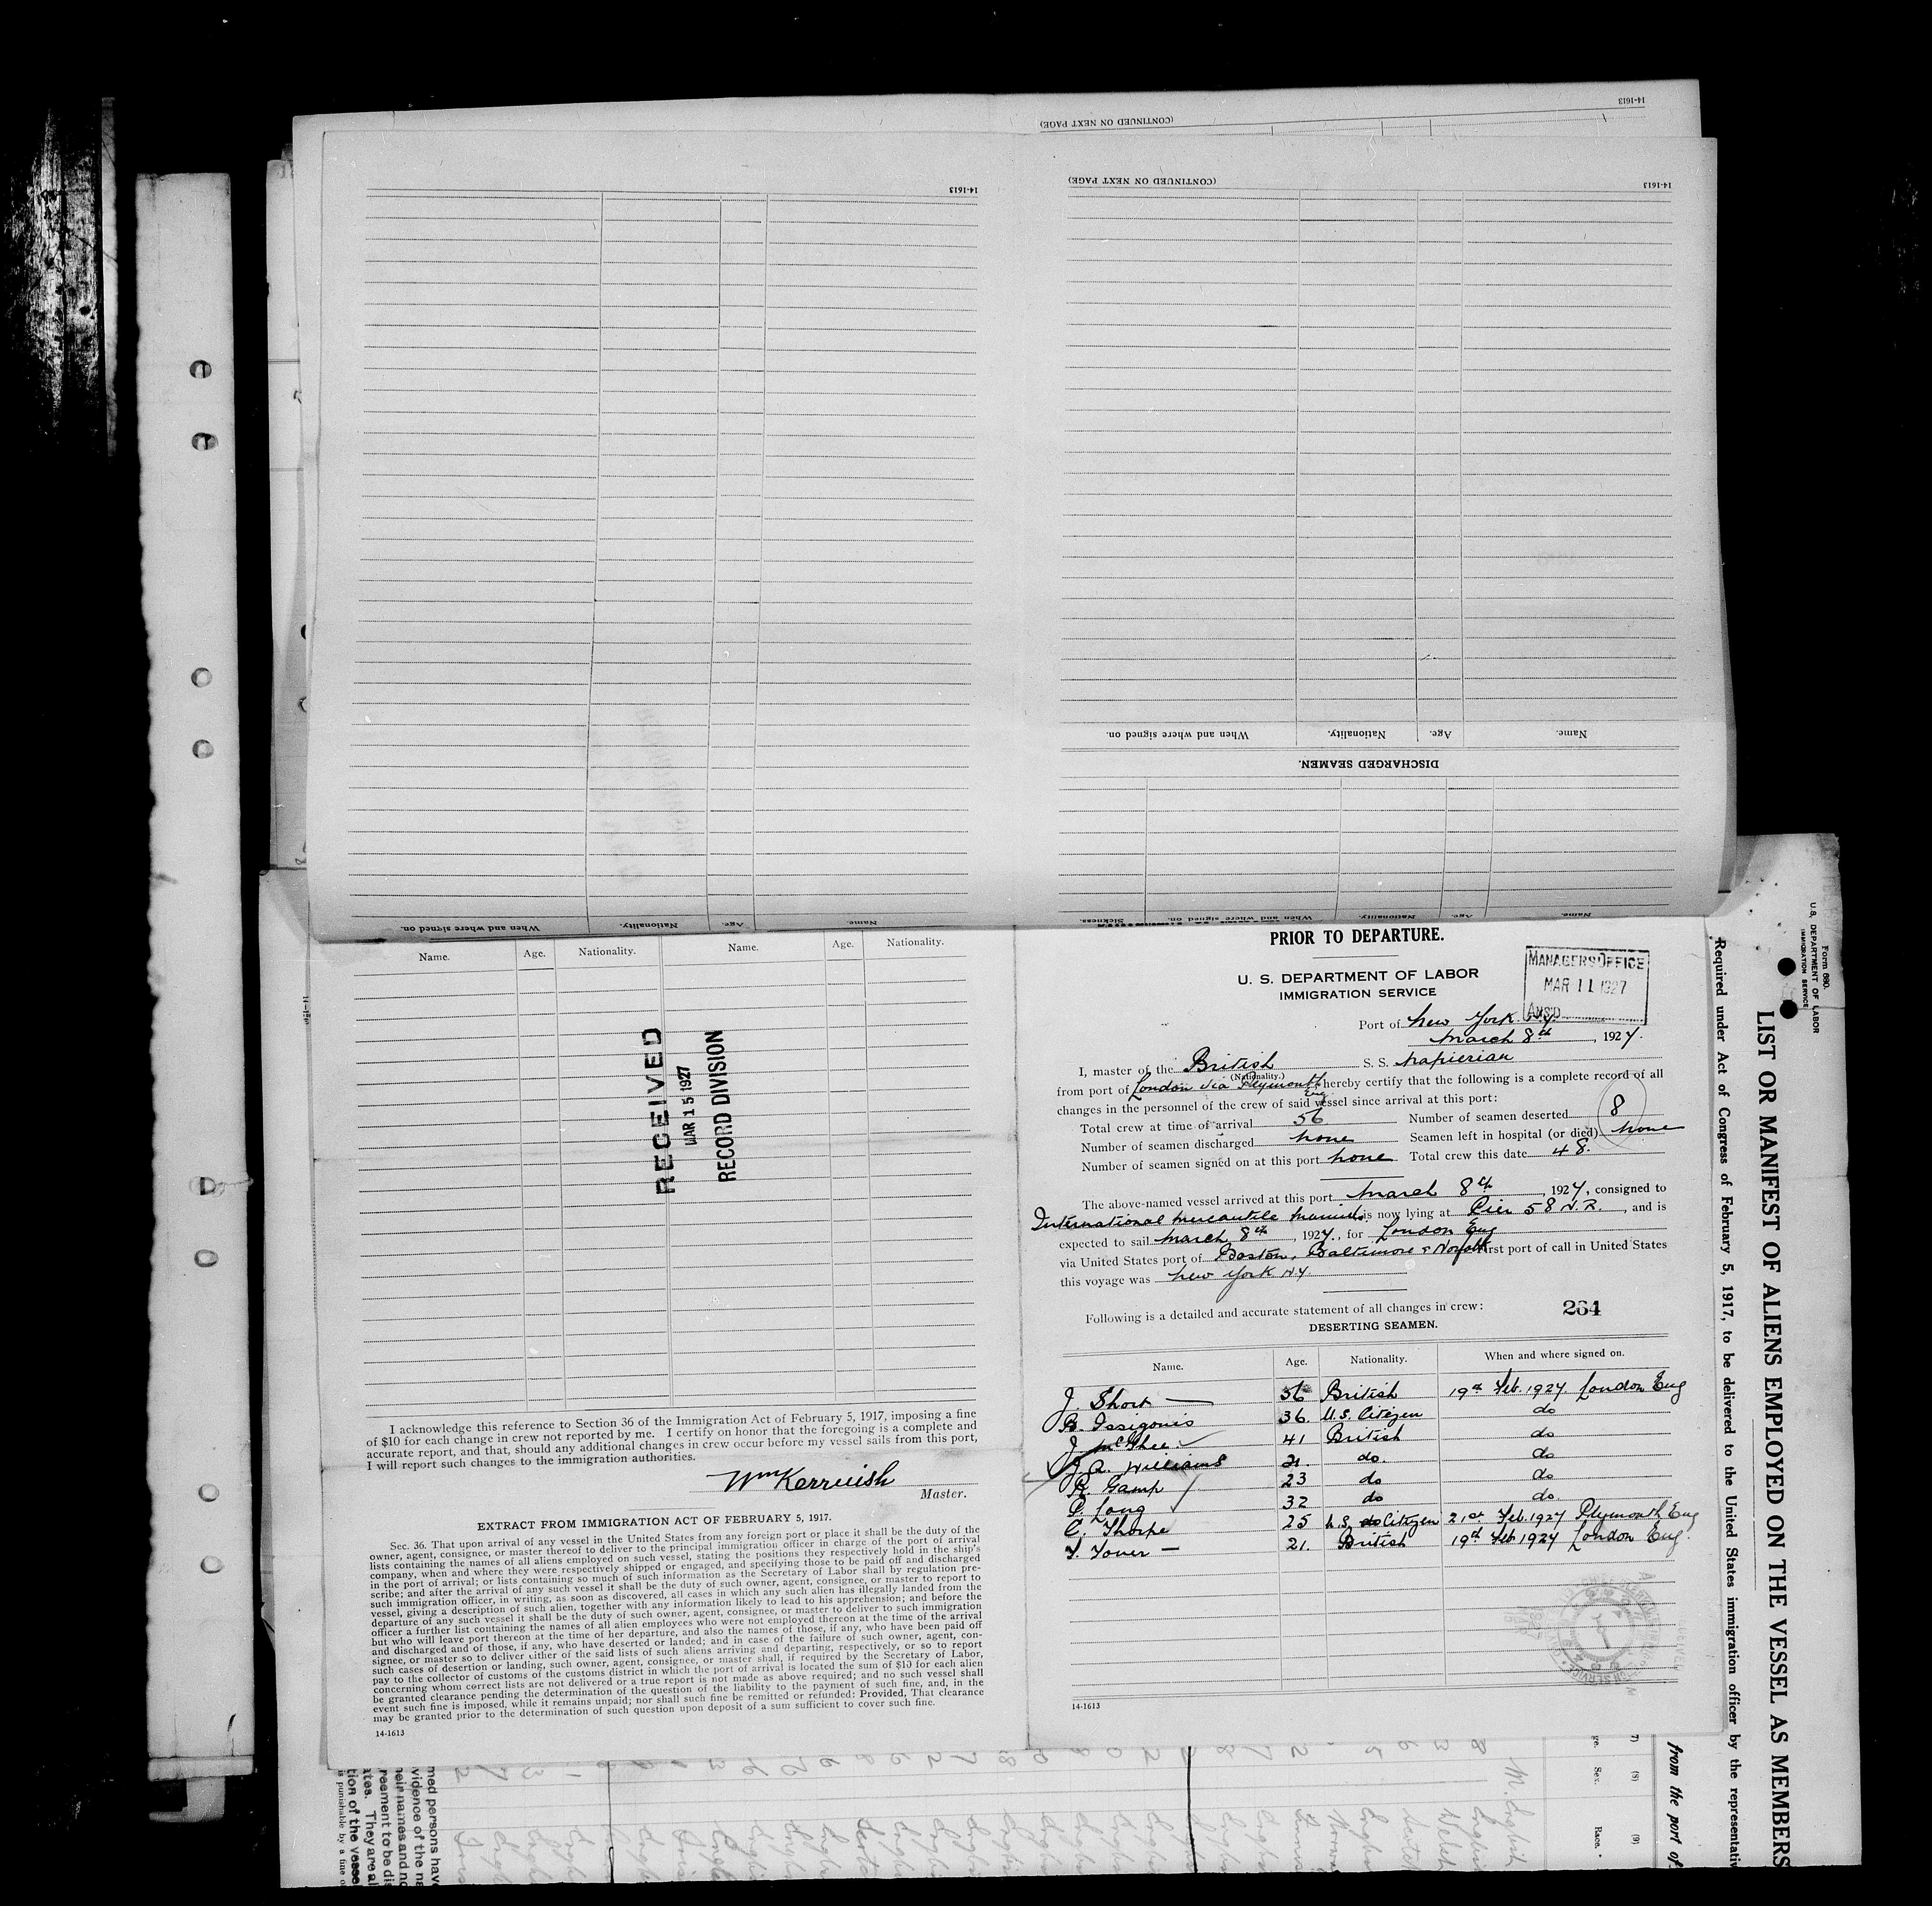 (CONTINUED ON NEXT PAGE)
14-1613
14-1613
(CONTINUED ON NEXT PAGE)
14-1613
When and where signed on.
Nationality.
Age.
Name.
DISCHARGED SEAMEN.
When and where signed on.
Nationality.
Age.
Name.
Sickness.
When and where signed on.
Nationality.
Age.
Name.
Name. Age. Nationality. Name. Age. Nationality.
RECEIVED
MAR 15 1927
RECORD DIVISION
I acknowledge this reference to Section 36 of the Immigration Act of February 5, 1917, imposing a fine
of $10 for each change in crew not reported by me. I certify on honor that the foregoing is a complete and
accurate report, and that, should any additional changes in crew occur before my vessel sails from this port,
I will report such changes to the immigration authorities.
Wm Kerruish
Master.
EXTRACT FROM IMMIGRATION ACT OF FEBRUARY 5, 1917.
Sec. 36. That upon arrival of any vessel in the United States from any foreign port or place it shall be the duty of the
owner, agent, consignee, or master thereof to deliver to the principal immigration officer in charge of the port of arrival
lists containing the names of all aliens employed on such vessel, stating the positions they respectively hold in the ship's
company, when and where they were respectively shipped or engaged, and specifying those to be paid off and discharged
in the port of arrival; or lists containing so much of such information as the Secretary of Labor shall by regulation pre-
scribe; and after the arrival of any such vessel it shall be the duty of such owner, agent, consignee, or master to report to
such immigration officer, in writing, as soon as discovered, all cases in which any such alien has illegally landed from the
vessel, giving a description of such alien, together with any information likely to lead to his apprehension; and before the
departure of any such vessel it shall be the duty of such owner, agent, consignee, or master to deliver to such immigration
officer a further list containing the names of all alien employees who were not employed thereon at the time of the arrival
but who will leave port thereon at the time of her departure, and also the names of those, if any, who have been paid off
and discharged and of those, if any, who have deserted or landed; and in case of the failure of such owner, agent, con-
signee, or master so to deliver either of the said lists of such aliens arriving and departing, respectively, or so to report
such cases of desertion or landing, such owner, agent, consignee, or master shall, if required by the Secretary of Labor,
pay to the collector of customs of the customs district in which the port of arrival is located the sum of $10 for each alien
concerning whom correct lists are not delivered or a true report is not made as above required; and no such vessel shall
be granted clearance pending the determination of the question of the liability to the payment of such fine, and, in the
event such fine is imposed, while it remains unpaid; nor shall such fine be remitted or refunded: Provided, That clearance
may be granted prior to the determination of such question upon deposit of a sum sufficient to cover such fine.
14-1613
PRIOR TO DEPARTURE.
U. S. DEPARTMENT OF LABOR
IMMIGRATION SERVICE
MANAGERS OFFICE
MAR 11 1927
ANS'D
Port of New York. N.Y.
March 8th, 1927.
I, master of the British S. S. Napierian
(Nationality.)
from port of London via Plymouth Eng hereby certify that the following is a complete record of all
changes in the personnel of the crew of said vessel since arrival at this port:
Total crew at time of arrival 56 Number of seamen deserted 8
Number of seamen discharged none Seamen left in hospital (or died) none
Number of seamen signed on at this port none Total crew this date 48.
The above-named vessel arrived at this port March 8th, 1927, consigned to
International Mercantile Marine Co. is now lying at Pier 58 N.R., and is
expected to sail March 8th, 1927, for London Eng
via United States port of Boston, Baltimore & Norfolk First port of call in United States
this voyage was New York NY.
Following is a detailed and accurate statement of all changes in crew: 264
DESERTING SEAMEN.
Name. Age. Nationality. When and where signed on.
J. Short 56 British 19th Feb. 1927 London Eng
B. Issigonis 36. U.S. Citizen do
J. McGhee 41 British do
J. A. Williams 21. do. do
R. Gamp 23 do do
P. Long 32 do do.
C. Thorpe 25 U.S. do Citizen 21st Feb. 1927 Plymouth Eng
T. Tower 21. British 19th Feb 1927 London Eng.
14-1613
Form 680.
U. S. DEPARTMENT OF LABOR
IMMIGRATION SERVICE
LIST OR MANIFEST OF ALIENS EMPLOYED ON THE VESSEL AS MEMBERS
Required under Act of Congress of February 5, 1917, to be delivered to the United States immigration officer by the representativ
from the port of
(8)
(9)
Sex.
Race.